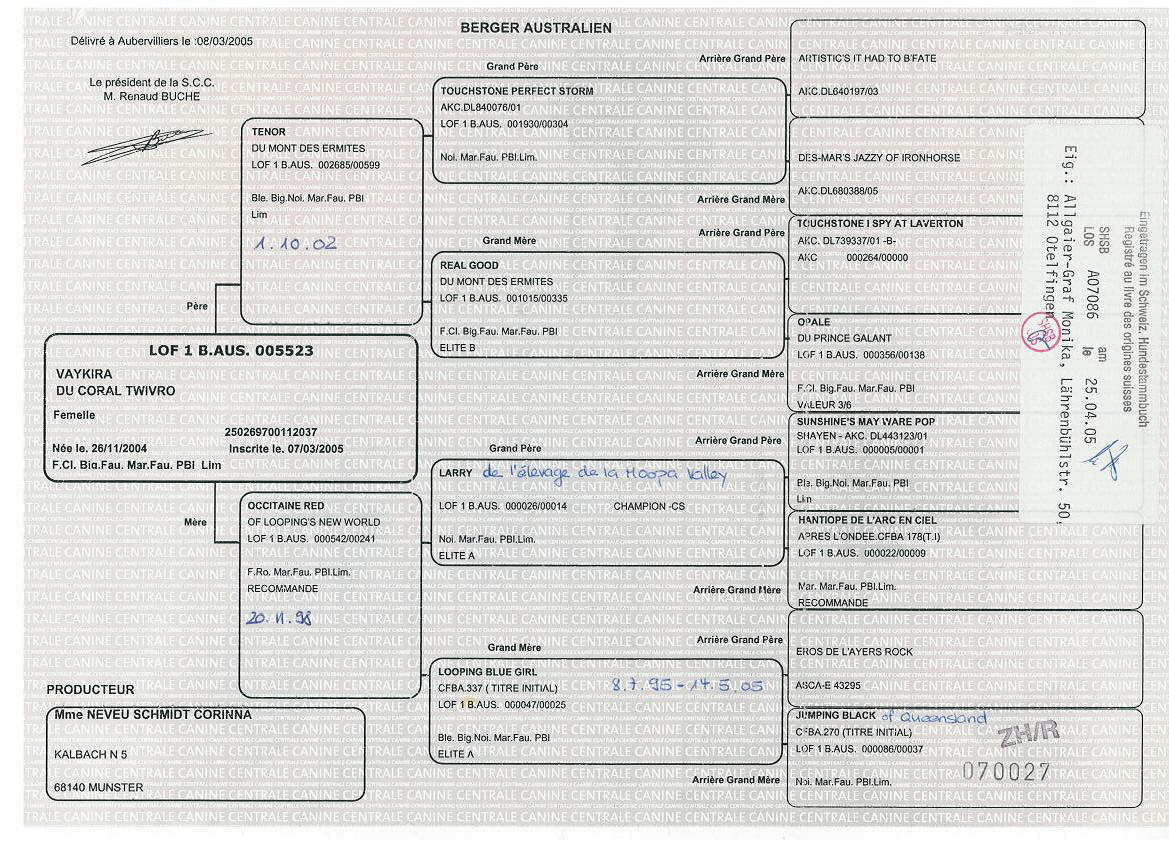 BERGER AUSTRALIEN
Délivré à Aubervilliers le :08/03/2005
Le président de la S.C.C.
M. Renaud BUCHE
LOF 1 B.AUS. 005523
VAYKIRA
DU CORAL TWIVRO
Femelle
250269700112037
Née le. 26/11/2004 Inscrite le. 07/03/2005
F.Cl. Big.Fau. Mar.Fau. PBI Lim
PRODUCTEUR
Mme NEVEU SCHMIDT CORINNA
KALBACH N 5
68140 MUNSTER
Père
TENOR
DU MONT DES ERMITES
LOF 1 B.AUS. 002685/00599
Ble. Big.Noi. Mar.Fau. PBI
Lim
1.10.02
Mère
OCCITAINE RED
OF LOOPING'S NEW WORLD
LOF 1 B.AUS. 000542/00241
F.Ro. Mar.Fau. PBI.Lim.
RECOMMANDE
20.11.98
Grand Père
TOUCHSTONE PERFECT STORM
AKC.DL840076/01
LOF 1 B.AUS. 001930/00304
Noi. Mar.Fau. PBI.Lim.
Grand Mère
REAL GOOD
DU MONT DES ERMITES
LOF 1 B.AUS. 001015/00335
F.Cl. Big.Fau. Mar.Fau. PBI
ELITE B
Grand Père
LARRY de l'élevage de la Hoopa Valley
LOF 1 B.AUS. 000026/00014 CHAMPION -CS
Noi. Mar.Fau. PBI.Lim.
ELITE A
Grand Mère
LOOPING BLUE GIRL
CFBA.337 ( TITRE INITIAL) 8.7.95 - 14.5.05
LOF 1 B.AUS. 000047/00025
Ble. Big.Noi. Mar.Fau. PBI
ELITE A
Arrière Grand Père
ARTISTIC'S IT HAD TO B'FATE
AKC.DL640197/03
DES-MAR'S JAZZY OF IRONHORSE
AKC.DL680388/05
Arrière Grand Mère
Arrière Grand Père
TOUCHSTONE I SPY AT LAVERTON
AKC. DL739337/01 -B-
AKC 000264/00000
OPALE
DU PRINCE GALANT
LOF 1 B.AUS. 000356/00138
Arrière Grand Mère
F.Cl. Big.Fau. Mar.Fau. PBI
VALEUR 3/6
Arrière Grand Père
SUNSHINE'S MAY WARE POP
SHAYEN - AKC. DL443123/01
LOF 1 B.AUS. 000005/00001
Ble. Big.Noi. Mar.Fau. PBI
Lim
HANTIOPE DE L'ARC EN CIEL
APRES L'ONDEE.CFBA 178(T.I)
LOF 1 B.AUS. 000022/00009
Mar. Mar.Fau. PBI.Lim.
Arrière Grand Mère
RECOMMANDE
Arrière Grand Père
EROS DE L'AYERS ROCK
ASCA-E 43295
JUMPING BLACK of Queensland
CFBA.270 (TITRE INITIAL)
LOF 1 B.AUS. 000086/00037
Arrière Grand Mère
Noi. Mar.Fau. PBI.Lim.
ZH/R
070027
Eingetragen im Schweiz. Hundestammbuch
Registré au livre des origines suisses
SHSB am
LOS A07086 le 25.04.05
Eig.: Allgaier-Graf Monika, Lährenbühlstr. 50,
8112 Otelfingen
SHSB
CENTRALE CANINE